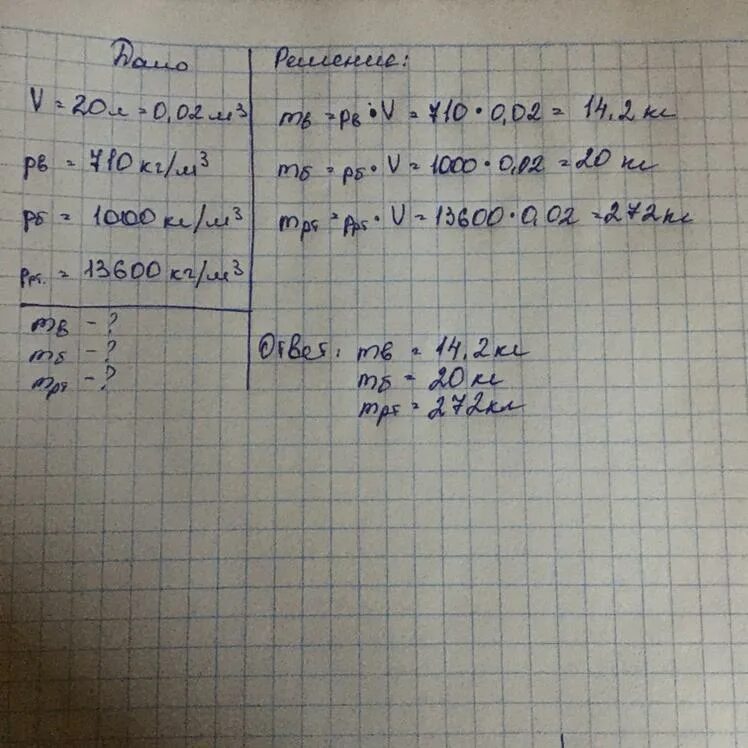 Дано
V = 20л = 0,02 м³
ρв = 710 кг/м³
ρб = 1000 кг/м³
ρрт. = 13600 кг/м³
mв - ?
mб - ?
mрт - ?
Решение:
mв = ρв · V = 710 · 0,02 = 14,2 кг
mб = ρб · V = 1000 · 0,02 = 20 кг
mрт = ρрт · V = 13600 · 0,02 = 272 кг
Ответ: mв = 14,2 кг
mб = 20 кг
mрт = 272 кг